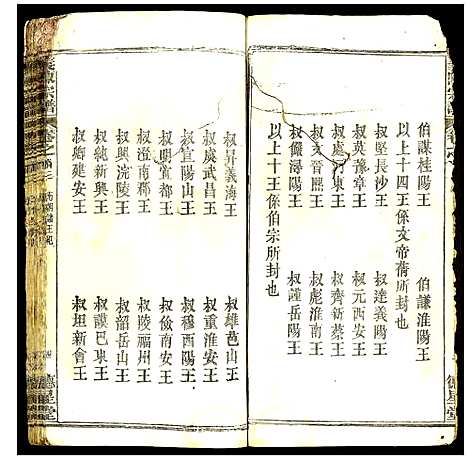 伯謀桂陽王　伯謙淮陽王
以上十四王係文帝蒨所封也
叔堅長沙王　叔達義陽王
叔英豫章王　叔元西安王
叔慮河東王　叔齊新蔡王
叔文晉熙王　叔彪淮南王
叔儼潯陽王　叔謹岳陽王
以上十王係伯宗所封也
叔昇義海王　叔雄邑山王
叔虞武昌王　叔重淮安王
叔宣陽山王　叔穆酉陽王
叔明宜都王　叔儉南安王
叔澄南郡王　叔陵福州王
叔興浣陵王　叔韶岳山王
叔純新興王　叔謨巴東王
叔卿建安王　叔坦新會王
宗譜
德星堂